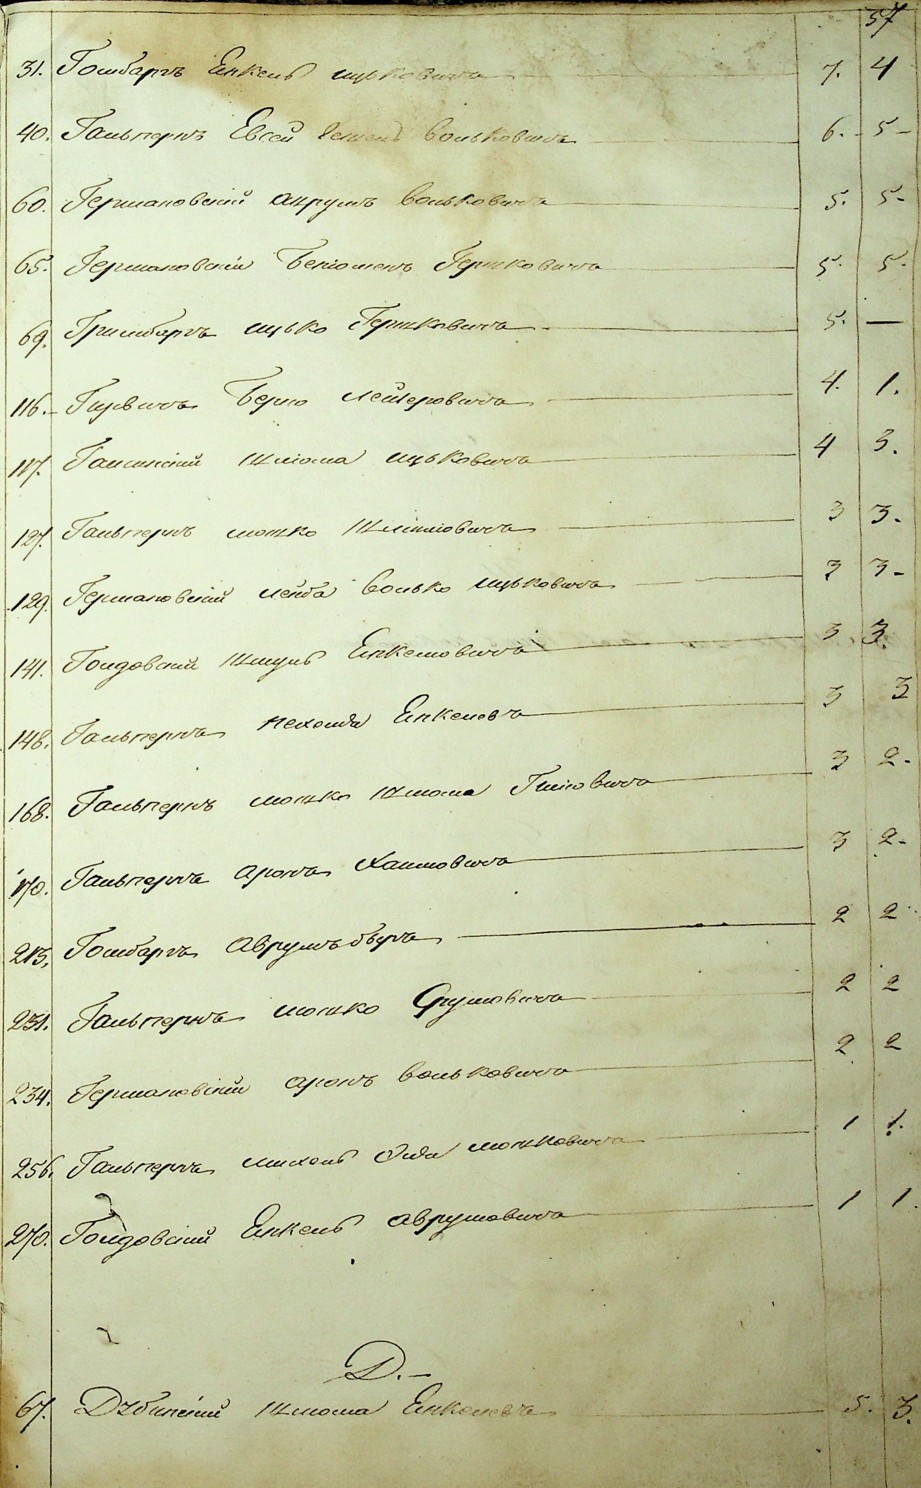 57
31. Гольдбергъ Енкель Ицковичъ 7. 4
40. Гальпернъ Евсей Вольковичъ 6. 5
60. Германовскій Анрумъ Вольковичъ 5. 5.
65. Германовскій Беніоменъ Гершковичъ 5. 5.
69. Гринбергъ Ицько Гершковичъ 5. —
116. Гурвичъ Берко Лейзеровичъ 4. 1.
117. Галинскій Шліома Ицьковичъ 4 3.
127. Гальпернъ Мошко Шліомовичъ 3 3.
129. Германовскій Лейба Волько Ицьковичъ 3 3
141. Голдовскій Шмуль Енкеловичъ 3 3.
148. Гальпернъ Енкелевъ 3 3
168. Гальпернъ Мошко Шліома 3 2.
170. Гальпернъ Аронъ Хаимовичъ 3 2.
213. Аврумъ 2 2
231. Гальпернъ Мошко Срулювичъ 2 2
234. Германовскій Аронъ Вольковичъ 2 2
256. Гальпернъ Михель Мошковичъ 1 1.
270. Голдовскій Енкель Аврумовичъ 1 1.
Д.
67. Шліома Енкелевъ 5. 3.